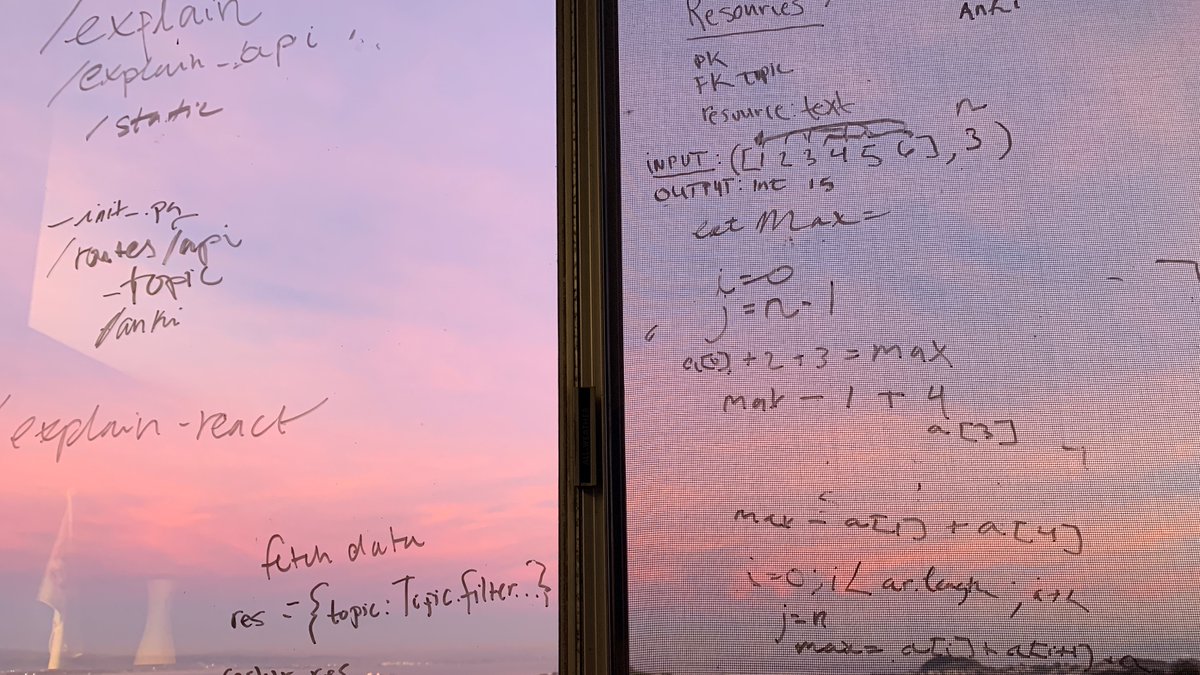 /explain
/explain_api ...
/static
_init_.py
/routes/api
_topic
/anki
/explain-react
fetch data
res = {topic: Topic.filter...}
Resources
Anki
PK
FK Topic
resource: text
n
INPUT: ([1 2 3 4 5 6], 3)
OUTPUT: int 15
Max =
i=0
j=n-1
a[0] + 2 + 3 = max
max - 1 + 4
a[3]
max - a[1] + a[4]
i=0; i< ar.length; i++
j=n
max = a[i] + a[i+1] + a